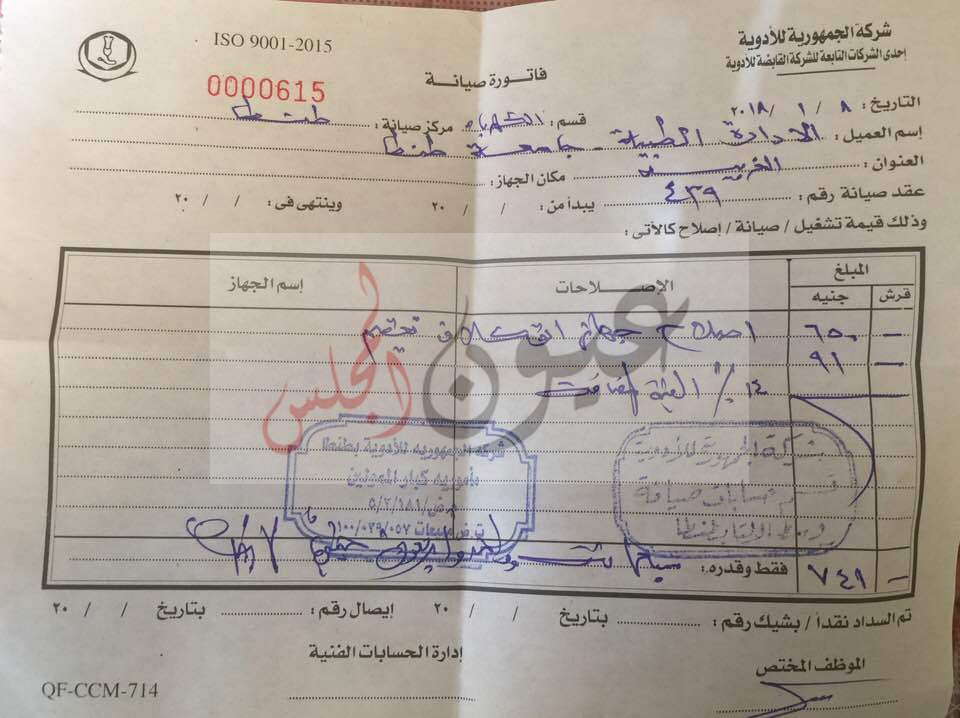 شركة الجمهورية للأدوية
إحدى الشركات التابعة للشركة القابضة للأدوية
ISO 9001-2015
فاتورة صيانة
0000615
التاريخ : ٨ / ١ / ٢٠١٨
قسم : الكهرباء مركز صيانة : طنطا
إسم العميل : الادارة الطبية - جامعة طنطا
العنوان : الغربية مكان الجهاز :
عقد صيانة رقم : ٤٣٩ يبدأ من : / / ٢٠ وينتهى فى : / / ٢٠
وذلك قيمة تشغيل / صيانة / إصلاح كالأتى :
المبلغ
قرش جنيه الإصلاحات إسم الجهاز
— ٦٥٠ اصلاح جهاز
— ٩١
١٤٪ القيمة المضافة
عيون المجلس
شركة الجمهورية للأدوية
حسابات صيانة
شركه الجمهوريه للأدوية بطنطا
مأموريه كبار الممولين
٥/٢/١٨١
١٠٠/٠٣٩/٠٥٧
— ٧٤١ فقط وقدره :
تم السداد نقداً / بشيك رقم : بتاريخ / / ٢٠ إيصال رقم : بتاريخ / / ٢٠
الموظف المختص إدارة الحسابات الفنية
QF-CCM-714